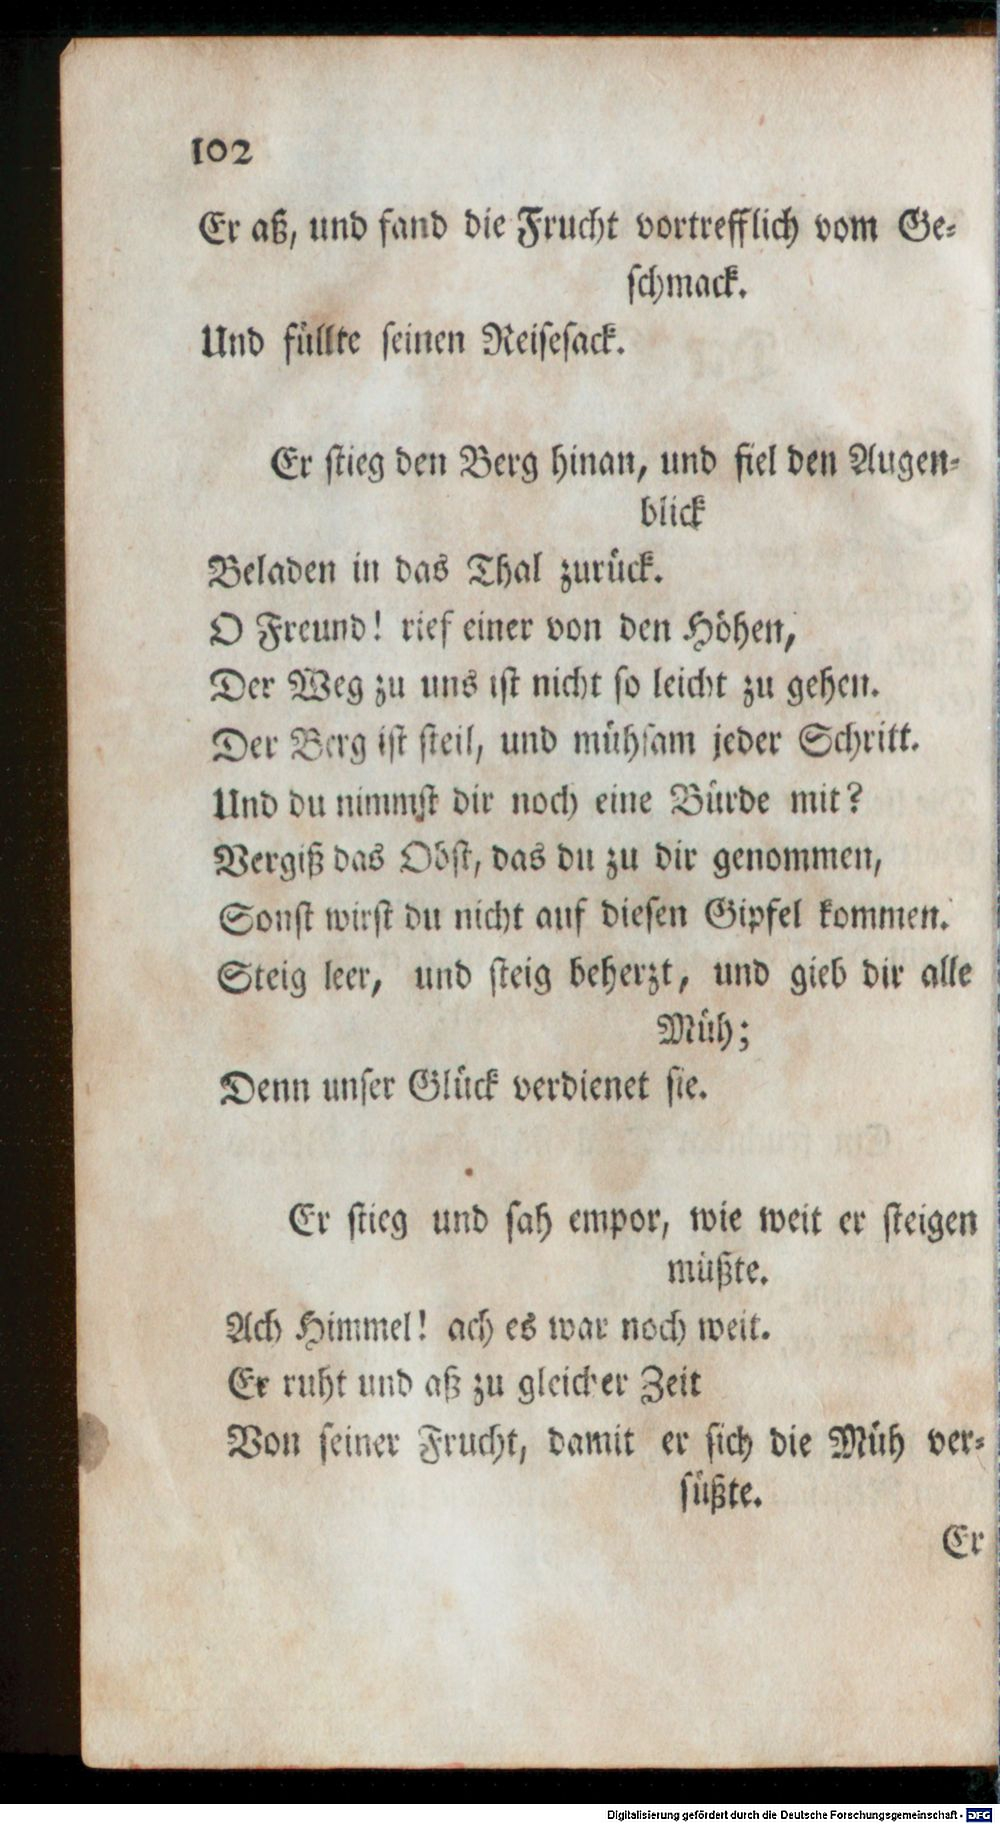 102
Er aß, und fand die Frucht vortrefflich vom Ge-
schmack.
Und füllte seinen Reisesack.
Er stieg den Berg hinan, und fiel den Augen-
blick
Beladen in das Thal zurück.
O Freund! rief einer von den Höhen,
Der Weg zu uns ist nicht so leicht zu gehen.
Der Berg ist steil, und mühsam jeder Schritt.
Und du nimmst dir noch eine Bürde mit?
Vergiß das Obst, das du zu dir genommen,
Sonst wirst du nicht auf diesen Gipfel kommen.
Steig leer, und steig beherzt, und gieb dir alle
Müh;
Denn unser Glück verdienet sie.
Er stieg und sah empor, wie weit er steigen
müßte.
Ach Himmel! ach es war noch weit.
Er ruht und aß zu gleicher Zeit
Von seiner Frucht, damit er sich die Müh ver-
süßte.
Er
Digitalisierung gefördert durch die Deutsche Forschungsgemeinschaft - DFG